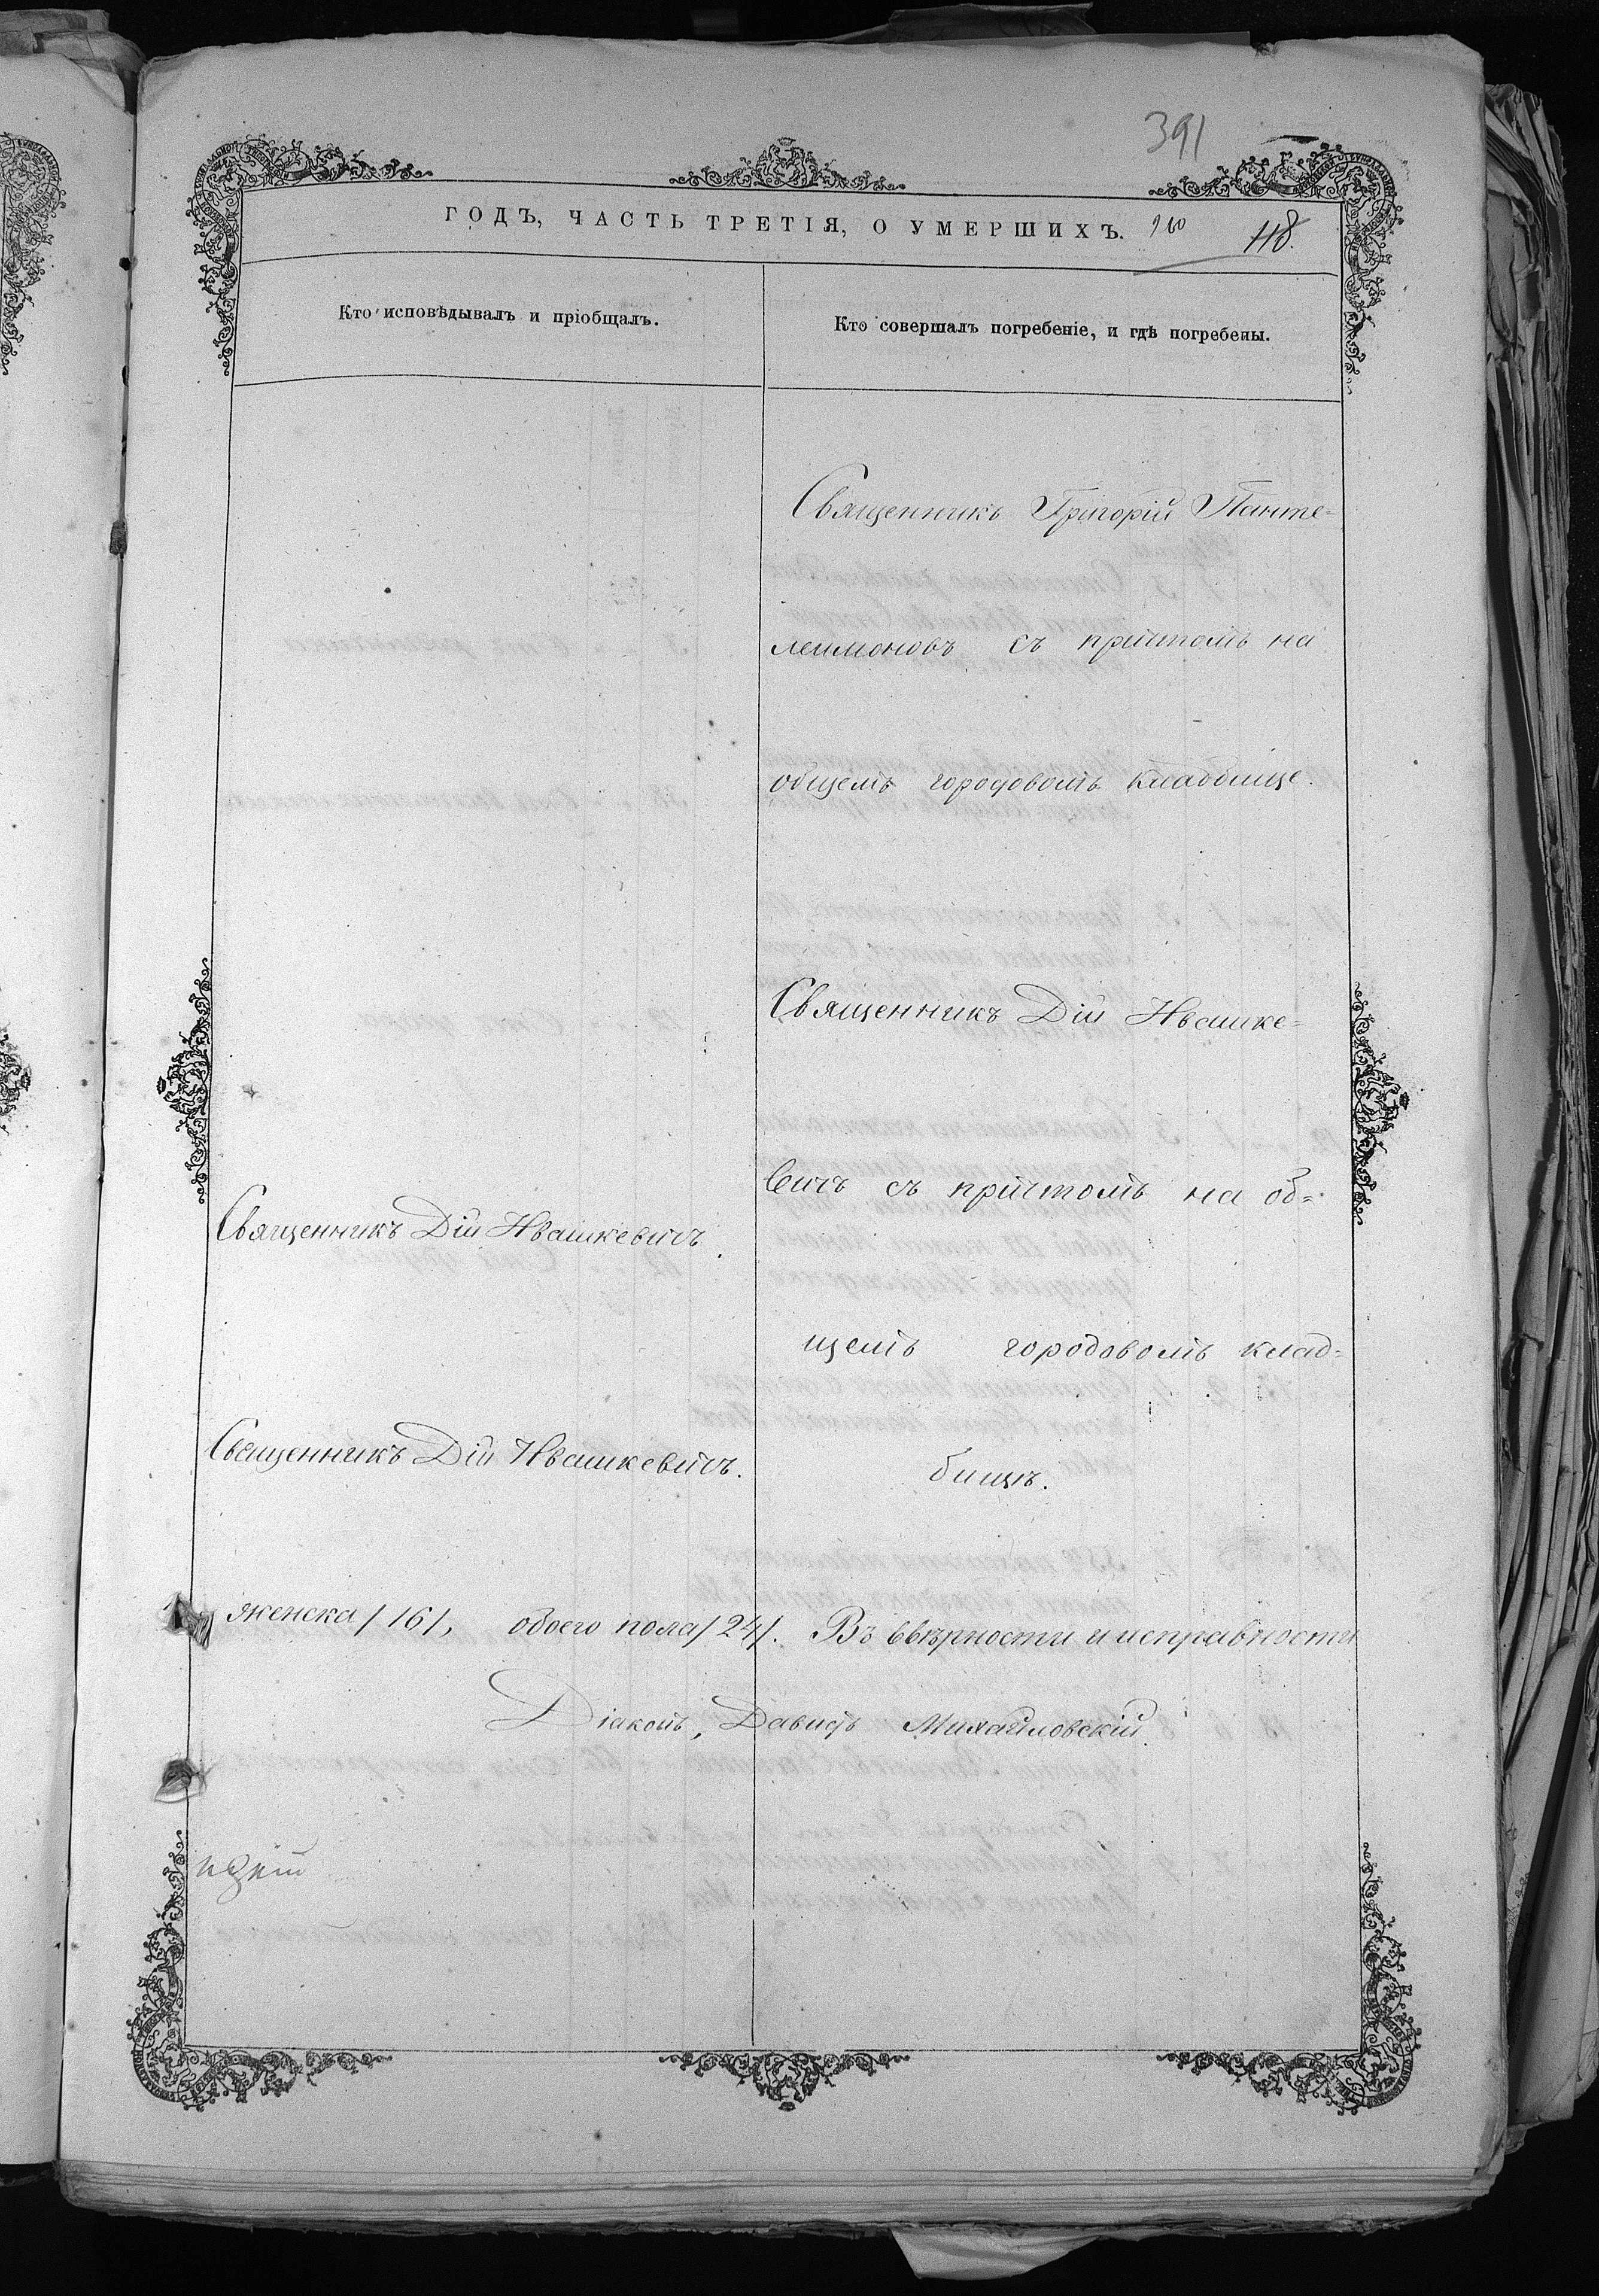 391
ГОДЪ, ЧАСТЬ ТРЕТІЯ, О УМЕРШИХЪ. 260 118.
Кто исповѣдывалъ и пріобщалъ.
Кто совершалъ погребеніе, и гдѣ погребены.
Священникъ Григорій Панте-
леимоновъ съ причтомъ на
общемъ городовомъ кладбище.
Священникъ Дій Ивашке=
вичъ съ причтомъ на об=
щемъ городовомъ клад=
бищѣ.
Священникъ Дій Ивашкевичъ.
Священникъ Дій Ивашкевичъ.
женска /16/, обоего пола /24/. Въ ввѣрности и исправности
Діаконъ, Давидъ Михайловскій.